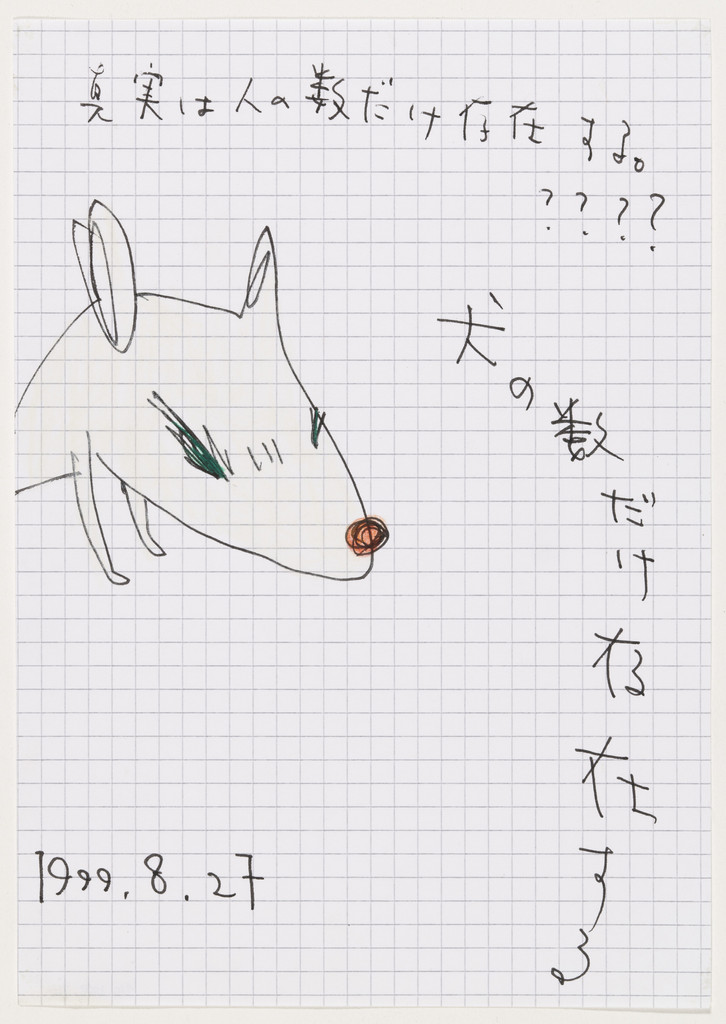 真実は人の数だけ存在する。
????
犬の数だけ存在する
1999.8.27